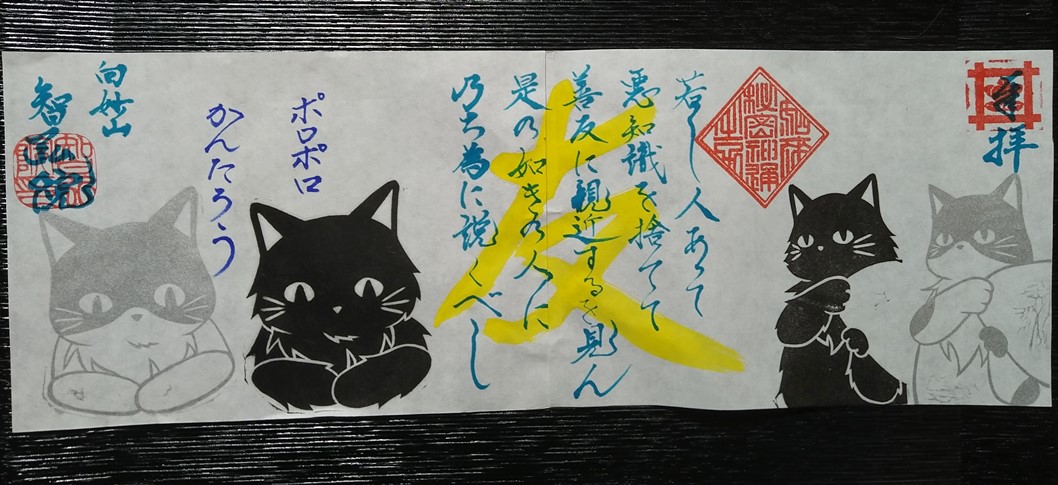 奉拝
若し人あって
悪知識を捨てて
善友に親近するを見ん
是の如きの人に
乃ち為に説くべし
友
ポロポロ
かんたろう
向妙山
智弘院